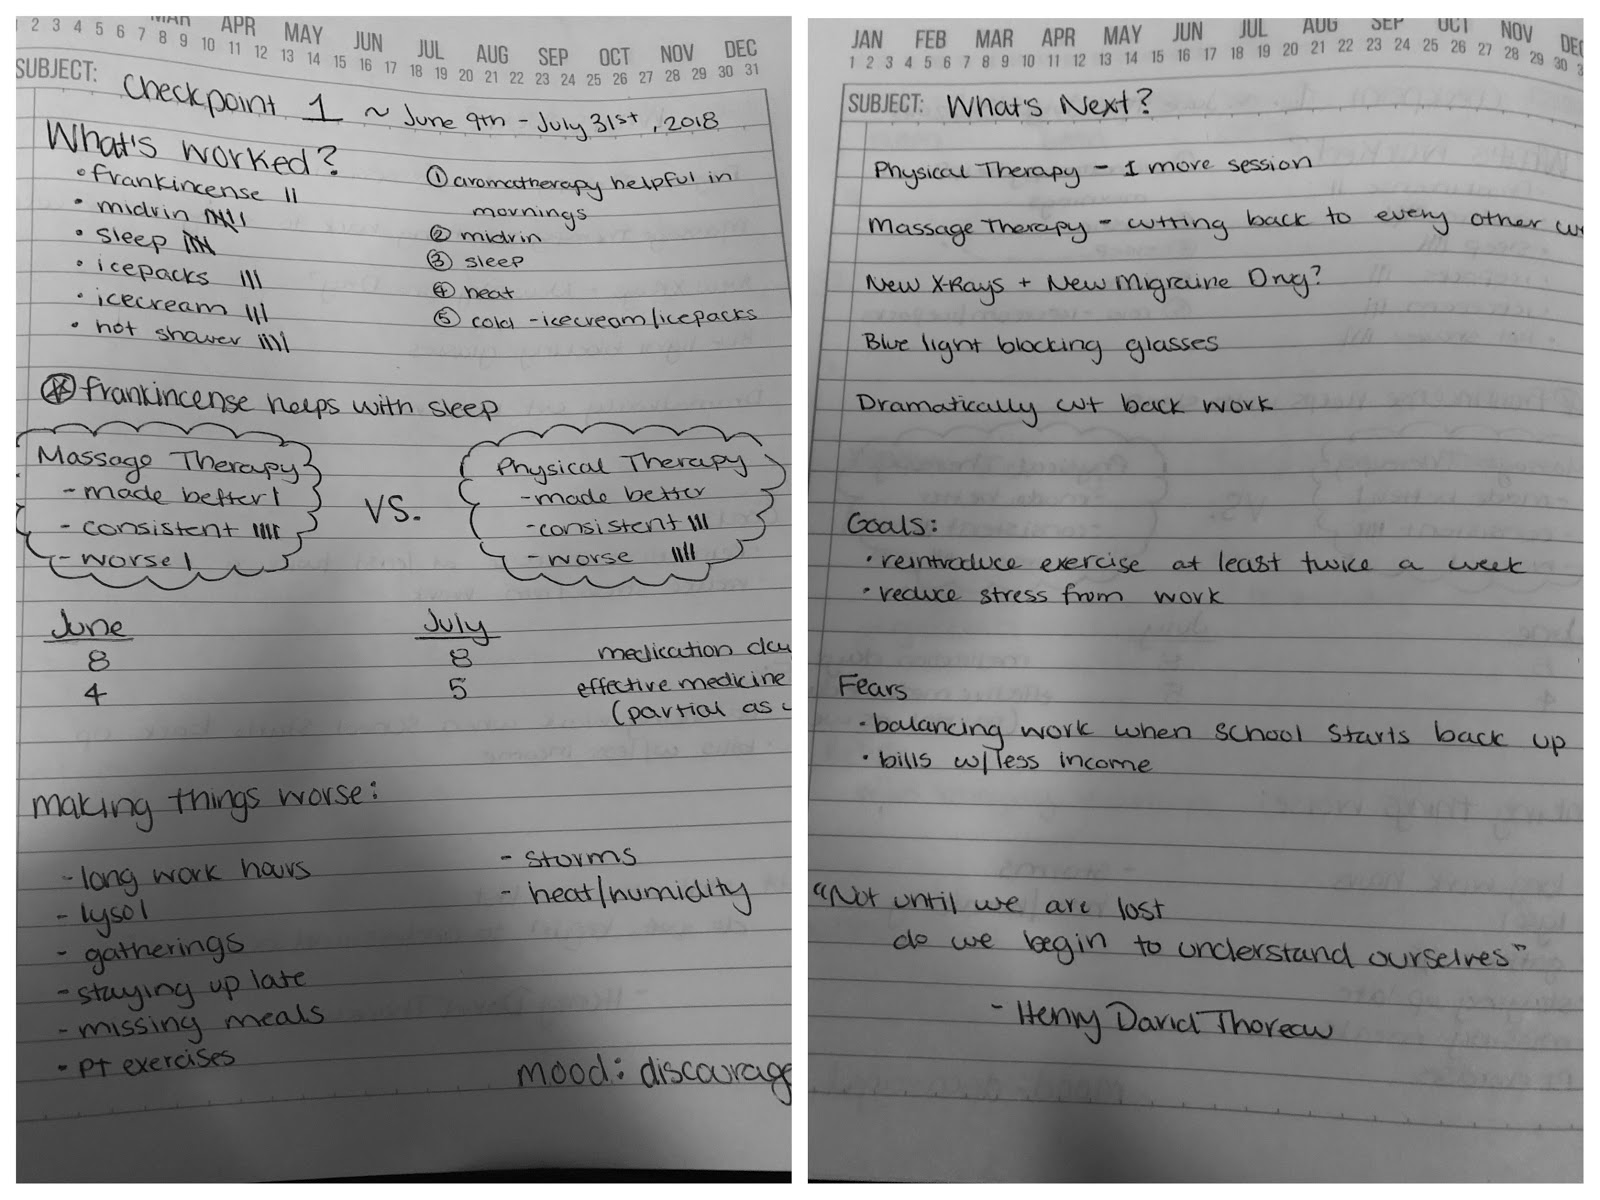 MAR APR MAY JUN JUL AUG SEP OCT NOV DEC
2 3 4 5 6 7 8 9 10 11 12 13 14 15 16 17 18 19 20 21 22 23 24 25 26 27 28 29 30 31
SUBJECT: Checkpoint 1 ~ June 9th - July 31st, 2018
What's worked?
• frankincense ||
• midrin
• sleep
• icepacks |||
• icecream |||
• hot shower ||||
① aromatherapy helpful in
mornings
② midrin
③ sleep
④ heat
⑤ cold - icecream/icepacks
frankincense helps with sleep
Massage Therapy
- made better |
- consistent ||||
- worse |
VS.
Physical Therapy
- made better
- consistent |||
- worse ||||
June July
8 8 medication
4 5 effective medicine
(partial as
making things worse:
- long work hours
- lysol
- gatherings
- staying up late
- missing meals
- PT exercises
- storms
- heat/humidity
mood: discourage
JAN FEB MAR APR MAY JUN JUL AUG SEP OCT NOV DEC
1 2 3 4 5 6 7 8 9 10 11 12 13 14 15 16 17 18 19 20 21 22 23 24 25 26 27 28 29 30
SUBJECT: What's Next?
Physical Therapy - 1 more session
Massage Therapy - cutting back to every other
New X-Rays + New Migraine Drug?
Blue light blocking glasses
Dramatically cut back work
Goals:
• reintroduce exercise at least twice a week
• reduce stress from work
Fears
• balancing work when school starts back up
• bills w/less income
"Not until we are lost
do we begin to understand ourselves"
- Henry David Thoreau